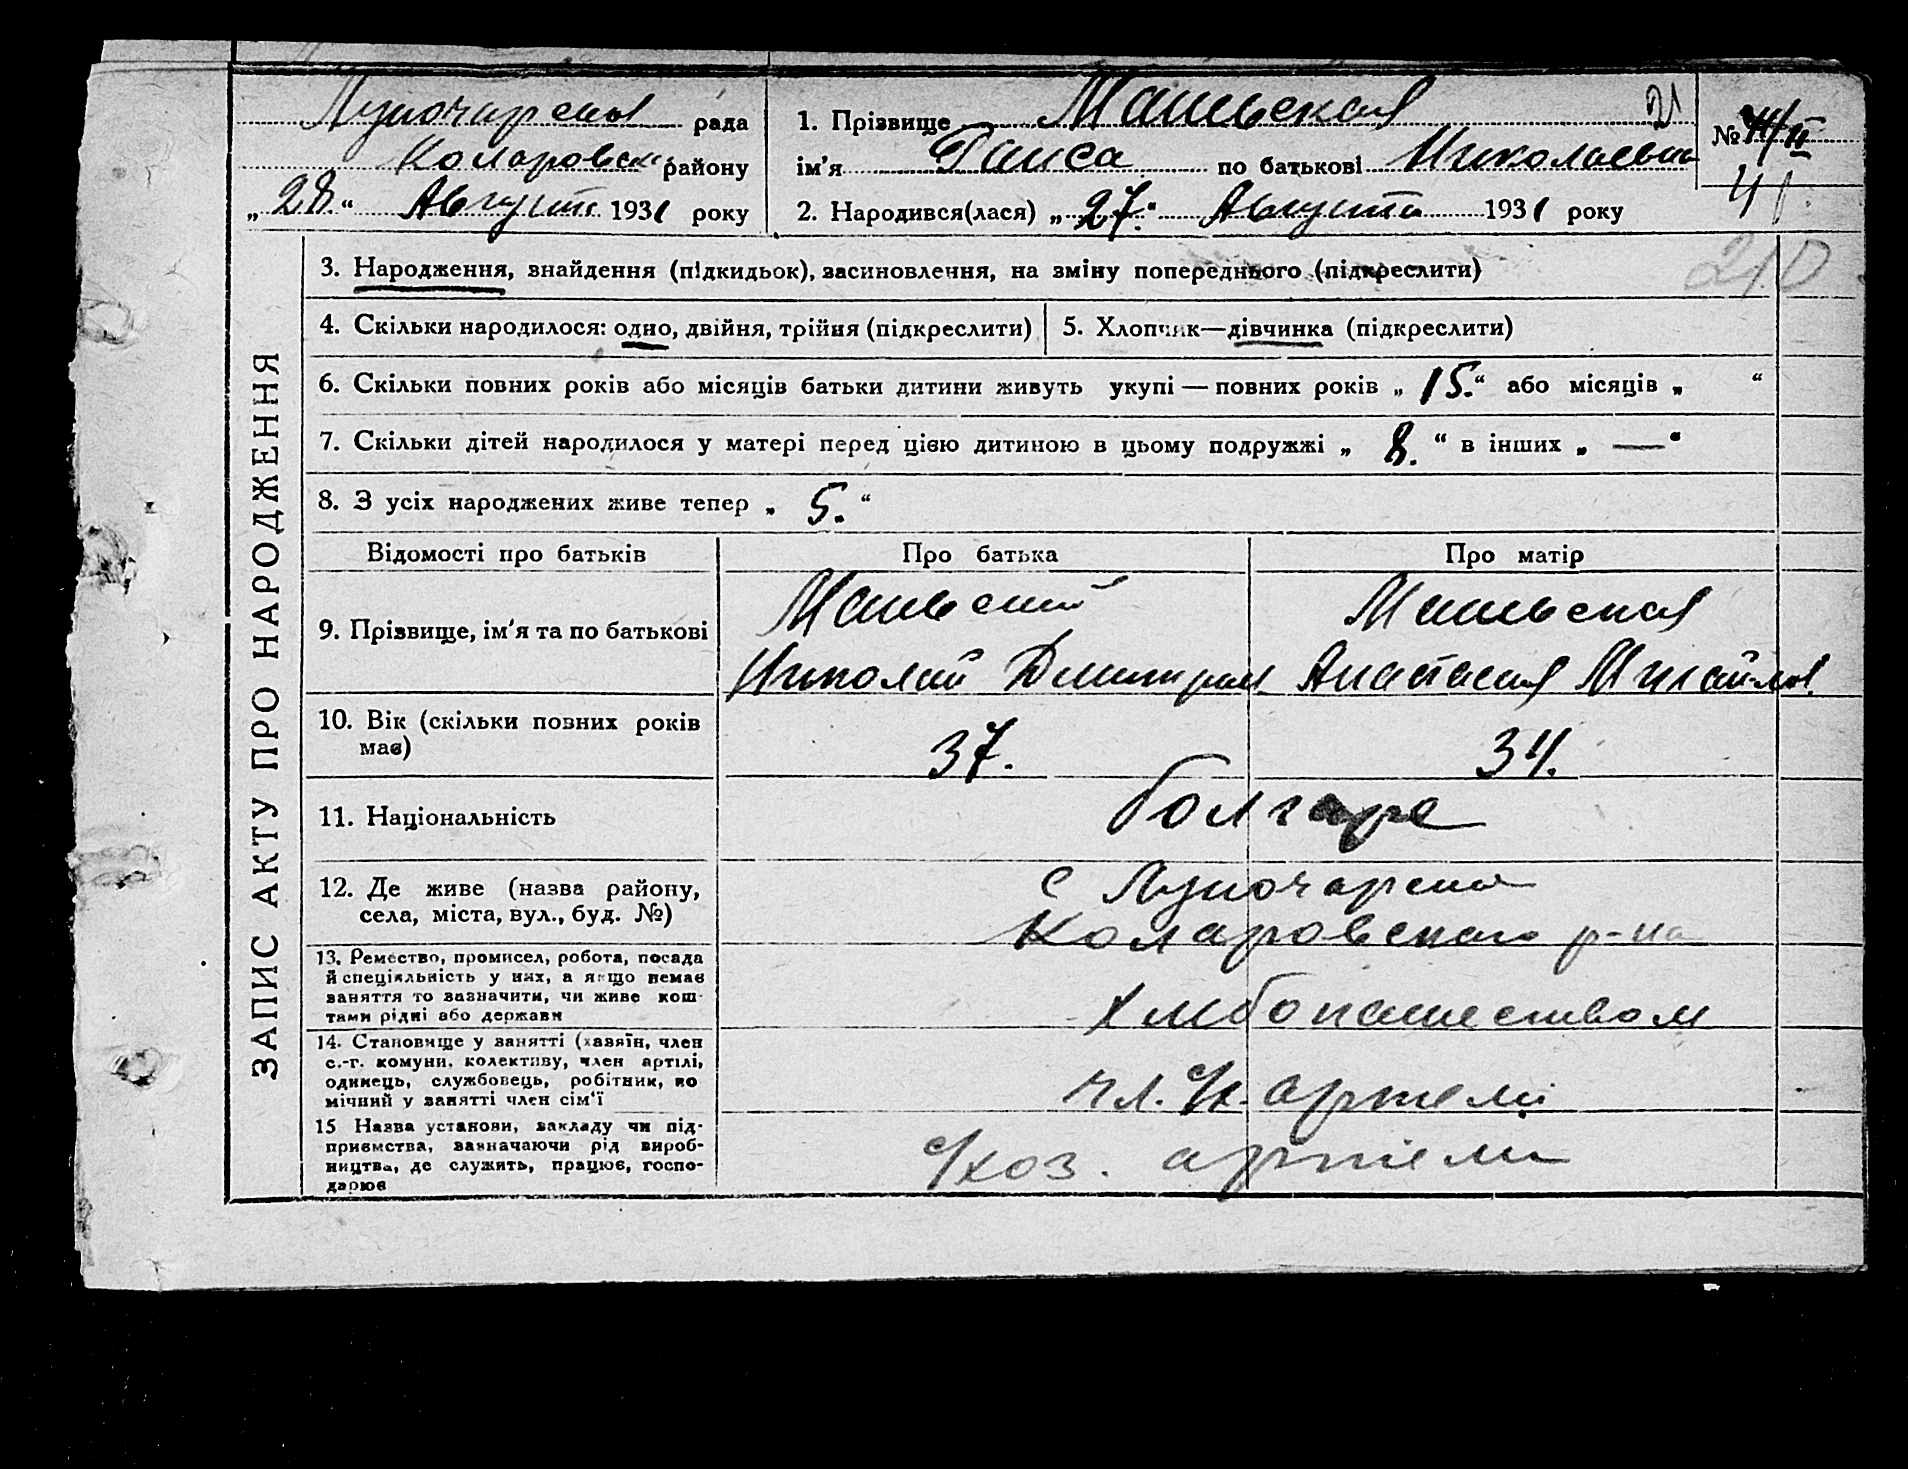 Луночарской рада
Коларовск району
„28“ Августа 1931 року
1. Прізвище
21
ім'я Раиса по батькові Николаевна
2. Народився(лася) „27.“ Августа 1931 року
№
41
210
ЗАПИС АКТУ ПРО НАРОДЖЕННЯ
3. Народження, знайдення (підкидьок), засиновлення, на зміну попереднього (підкреслити)
4. Скільки народилося: одно, двійня, трійня (підкреслити)
5. Хлопчик—дівчинка (підкреслити)
6. Скільки повних років або місяців батьки дитини живуть укупі — повних років „15.“ або місяців „ “
7. Скільки дітей народилося у матері перед цією дитиною в цьому подружжі „8.“ в інших „—“
8. З усіх народжених живе тепер „5.“
Відомості про батьків Про батька Про матір
9. Прізвище, ім'я та по батькові
Николай Анастасия
10. Вік (скільки повних років
має)
37. 34.
11. Національність
болгаре
12. Де живе (назва району,
села, міста, вул., буд. №)
с Луночарска
Коларовского р-на
13. Ремество, промисел, робота, посада
й спеціяльність у них, а якщо немає
заняття то зазначити, чи живе кош-
тами рідні або держави
Хлебопашеством
14. Становище у занятті (хазяїн, член
с.-г. комуни, колективу, член артілі,
одинець, службовець, робітник, по
мічний у занятті член сім'ї
чл. с/х. артели
15 Назва установи, закладу чи під-
приємства, зазначаючи рід вироб-
ництва, де служить, працює, госпо-
дарює
с/хоз. артели